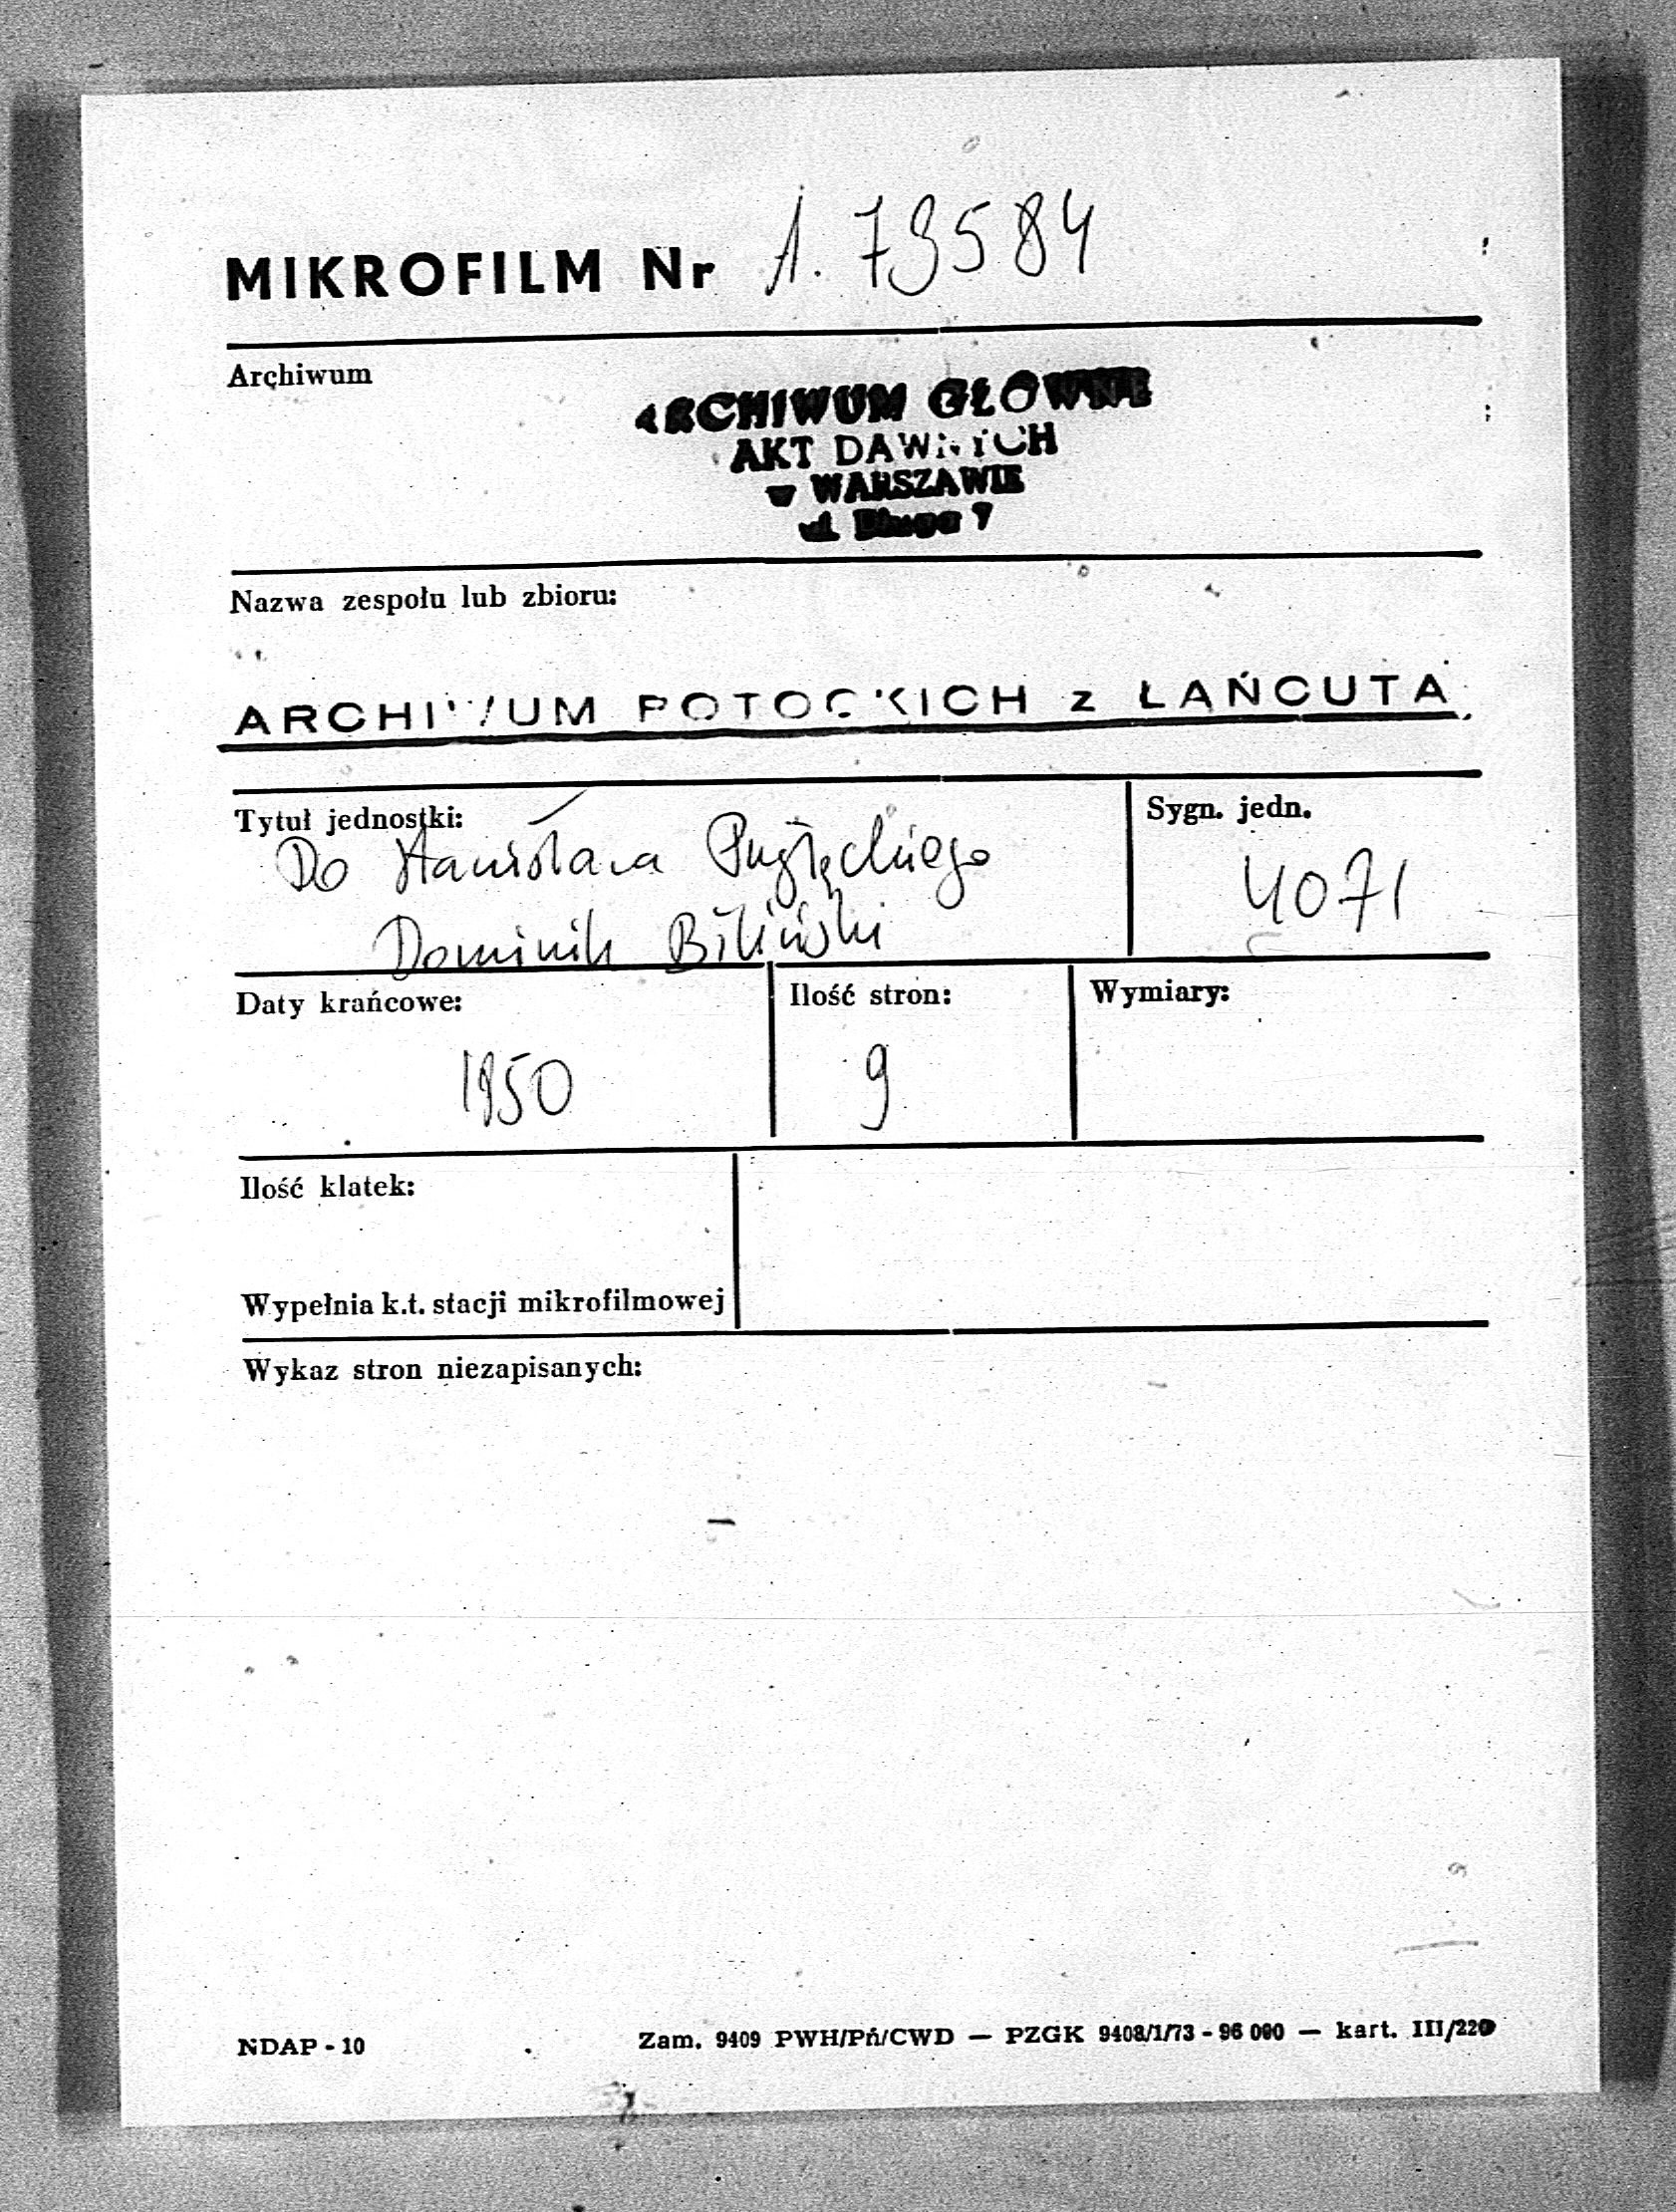 MIKROFILM Nr A. 79584
Archiwum
ARCHIWUM GŁÓWNE
AKT DAWNYCH
w WARSZAWIE
ul. Długa 7
Nazwa zespołu lub zbioru:
ARCHIWUM POTOCKICH z ŁAŃCUTA
Tytuł jednostki:
Sygn. jedn.
Do Stanisława
4071
Dominik Biliński
Daty krańcowe:
Ilość stron:
Wymiary:
1850
9
Ilość klatek:
Wypełnia k.t. stacji mikrofilmowej
Wykaz stron niezapisanych:
NDAP - 10
Zam. 9409 PWH/Pń/CWD — PZGK 9408/1/73 - 96 000 — kart. III/220